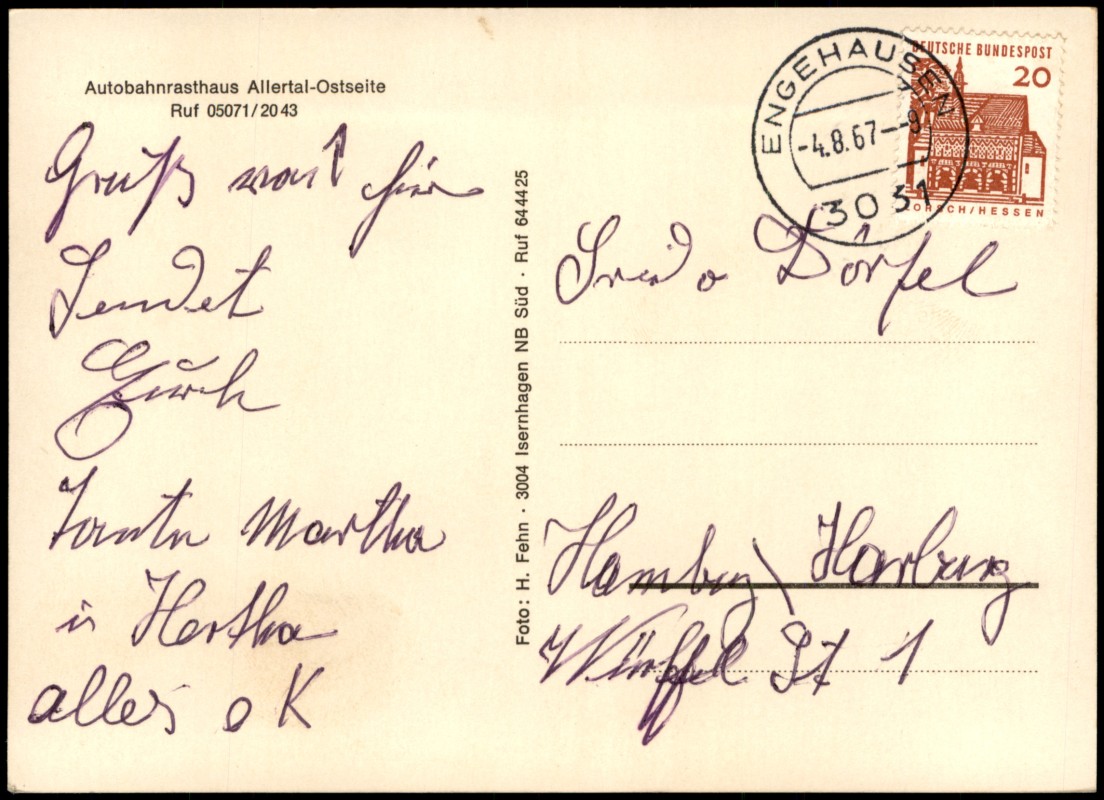 Autobahnrasthaus Allertal-Ostseite
Ruf 05071/2043
Gruß von hier
Sendet
Euch
Tante Martha
u Hertha
alles oK
Foto: H. Fehn · 3004 Isernhagen NB Süd · Ruf 644425
ENGEHAUSEN
-4.8.67--9
3031
DEUTSCHE BUNDESPOST
20
LORSCH/HESSEN
Dörfel
Hamburg Harburg
St 1